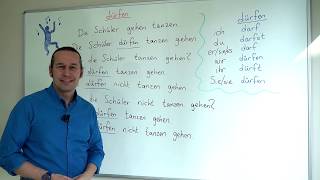 dürfen
Die Schüler gehen tanzen.
Die Schüler dürfen tanzen gehen.
die Schüler tanzen gehen?
dürfen tanzen gehen.
dürfen nicht tanzen gehen.
die Schüler nicht tanzen gehen?
dürfen tanzen gehen.
dürfen nicht tanzen gehen.
dürfen
ich darf
du darfst
er/sie/es darf
wir dürfen
ihr dürft
S.e/sie dürfen